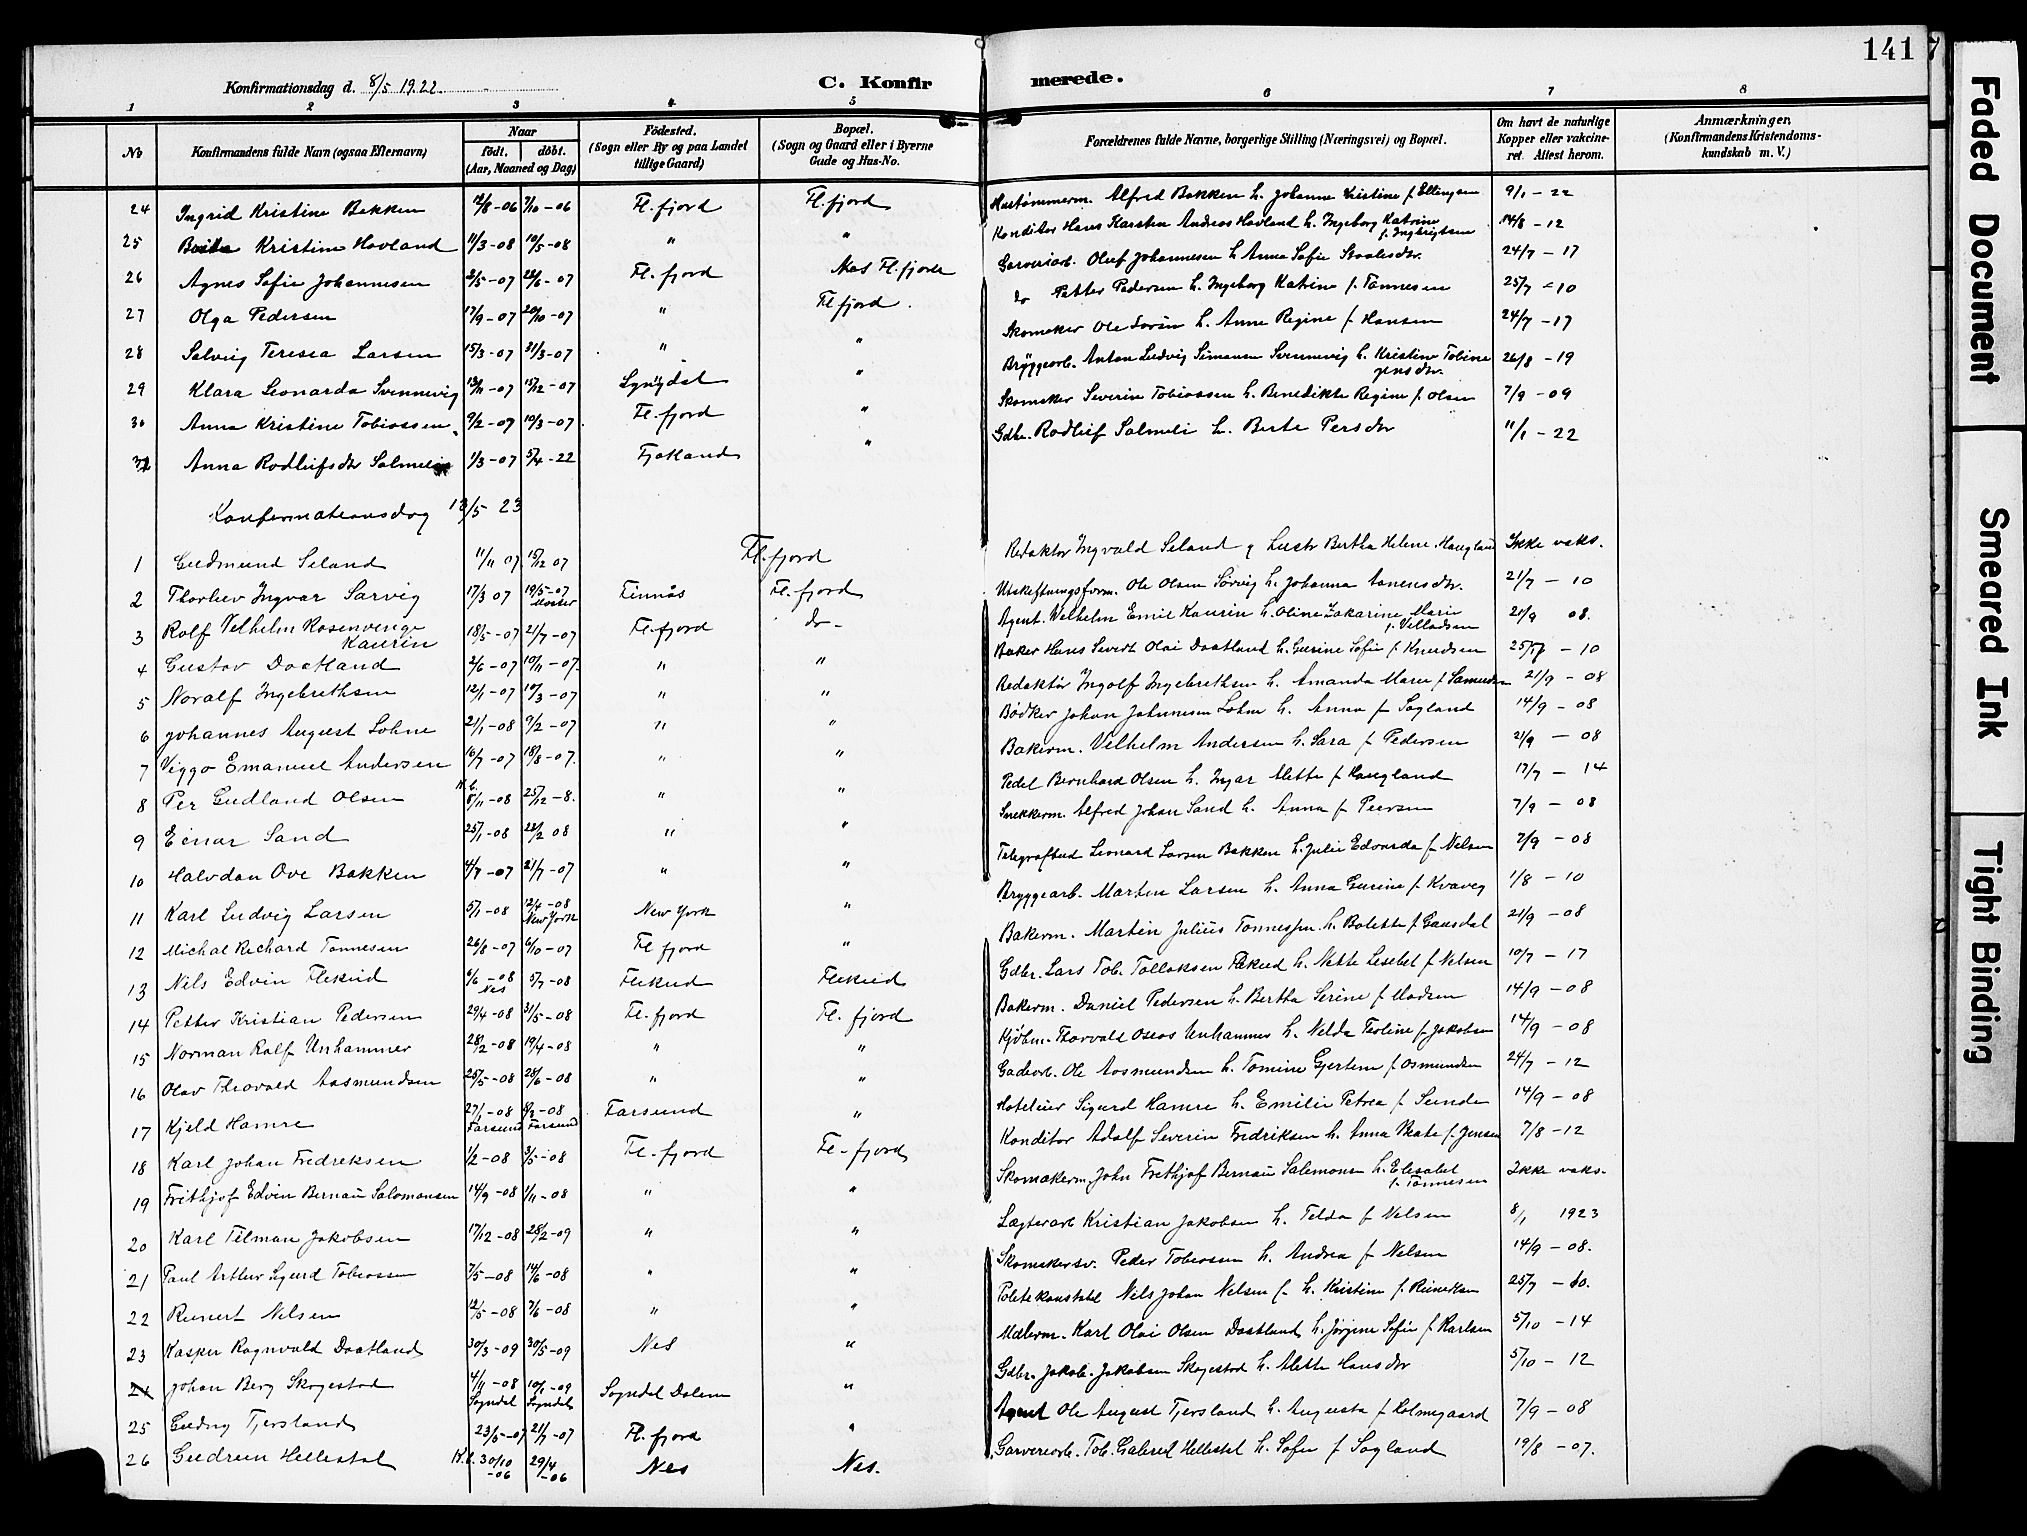 141
Konfirmationsdag d. 8/5 1922
C. Konfirmerede.
1 2 3 4 5 6 7 8
No
Konfirmandens fulde Navn (ogsaa Efternavn)
Naar
født. døbt.
(Aar, Maaned og Dag)
Fødested.
(Sogn eller By og paa Landet
tillige Gaard)
Bopæl.
(Sogn og Gaard eller i Byerne
Gade og Hus-No.
Forældrenes fulde Navne, borgerlige Stilling (Næringsvei) og Bopæl.
Om havt de naturlige
Kopper eller vakcine-
ret. Attest herom.
Anmærkninger.
(Konfirmandens Kristendoms-
kundskab m. V.)
24 Ingrid Kristine Bakken 12/8-06 7/10-06 Fl.fjord Fl.fjord Alfred Bakken h. Johanne Kristine f. Ellingsen 9/1-22
25 Kristine Hovland 11/3-08 10/5-08 " " Konditor Hans Karsten Andreas Hovland h. Ingeborg Katrine f. Ingbrigtsen 14/8-12
26 Agnes Sofie Johannesen 2/5-07 22/6-07 Fl.fjord Nes Fl.fjord Garveriarb. Oluf Johannesen h. Anna Sofie 24/7-17
27 Olga Pedersen 17/9-07 20/10-07 " Fl.fjord. do Petter Pedersen h. Ingeborg Katrine f. Tønnesen 25/7-10
28 Solveig Teresia Larsen 15/3-07 31/3-07 " " Skomaker Ole h. Anne Regine f. Hansen 24/7-17
29 Klara Leonarda Svennevig 13/11-07 15/12-07 Lyngdal " Bryggearb. Anton Ludvig Simonsen Svennevig h. Kristine Tobine Jensdtr. 26/8-19
30 Anna Kristine Tobiassen 9/2-07 10/3-07 Fl.fjord " Skomaker Severin Tobiassen h. Benedikte Regine f. Olsen 7/9-09
31 Anna Rodleifsdtr Salmeli 1/3-07 5/4-22 Fjotland " Gdbr. Rodleif Salmeli h. Berte Persdtr 11/1-22
Konfirmationsdag 13/5 23
1 Gudmund Seland 11/11 07 15/12 07 Fl.fjord Redaktør Ingvald Seland g Hustr Bertha Helene Haugland Ikke vaks.
2 Thorleiv Ingvar Sørvig 17/3 07 19/5-07 Moster Finnås Fl.fjord Utskiftningsform. Ole Olsen Sørvig h. Johanna Aanensdtr. 21/7-10
3 Rolf Vilhelm Rosenvinge Kaurin 18/5-07 21/7-07 Fl.fjord do- Agent. Vilhelm Emil Kaurin h. Oline Zakarine Marie f. Villadsen 21/9 08.
4 Gustav Daatland 2/6-07 10/11-07. " " Baker Hans Severt Olai Daatland h. Gurine Sofie f. Knudsen 25/7-10
5 Noralf Ingebrethsen 12/1-07 10/3-07 " " Redaktør Ingolf Ingebrethsen h. Amanda Marie f. Samuelsen 21/9-08
6 Johannes August Lohne 21/1-08 9/2-07 " " Bødker Johan Johannesen Lohne h. Anna f. Sogland 14/9-08
7 Viggo Emanuel Andersen 16/7-07 18/8-07. " " Bakerm. Vilhelm Andersen h. Sara f. Pedersen 21/9-08
8 Per Gudland Olsen 8/11-08 25/12-8. " " Pedel Bernhard Olsen h. Ingar Mette f. Haugland 17/7-14
9 Einar Sand 25/1-08 22/2 08 " " Snekkerm. Alfred Johan Sand h. Anna f. Peersen 7/9-08
10 Halvdan Ove Bakken 4/7-07 21/7-07 " " Telegrafbud Leonard Larsen Bakken h. Julie Edvarda f. Nelsen 7/9-08
11 Karl Ludvig Larsen 5/1-08 12/4-08 New York New York " Bryggearb. Martin Larsen h. Anna Gurine f. Kvaveg 1/8-10
12 Michal Richard Tønnesen 26/8-07 6/10-07 Fl.fjord " Bakerm. Martin Julius Tønnessen h. Bolette f. Gausdal 21/9-08
13 Nils Edvin Flekeid 6/6-08 Nes 5/7-08 Flekeid Flekeid Gdbr. Lars Tob. Tollaksen Flekeid h. Mette Lisebet f. Nelsen 10/7-17
14 Petter Kristian Pedersen 29/4-08 31/5-08 Fl.fjord Fl.fjord Bakerm. Daniel Pedersen h. Bertha Serine f. Madsen 14/9-08
15 Norman Rolf Unhammer 28/2-08 19/4-08 " " Kjøbm. Thorvald Oseas Unhammer h. Nelda Teoline f. Jakobsen 14/9-08
16 Olav Thorvald Aasmundsen 25/5-08 28/6-08 " " Gadearb. Ole Aasmundsen h. Tomine Gjertine f. Osmundsen 24/7-12
17 Kjeld Hamre 27/1-08 Farsund 8/3-08 Farsund Farsund " Hoteleier Sigurd Hamre h. Emilie Petrea f. Sunde 14/9-08
18 Karl Johan Fredriksen 1/2-08 3/5-08 Fl.-fjord Fl.-fjord Konditor Adolf Severin Fredriksen h. Anna Beate f. Jensen 7/8-12
19 Frithjof Edvin Bernau Salomonsen 14/9-08 1/11-08 " " Skomakerm. John Frithjof Bernau Salomonsen h. Elisabet f. Tønnesen Ikke vaks.
20 Karl Tilman Jakobsen 17/12-08 28/2-09 " " Lægterarb Kristian Jakobsen h. Telda f. Nelsen 8/1 1923
21 Paul Arthur Sigurd Tobiassen 7/5-08 14/6-08 " " Skomakersv. Peder Tobiassen h. Andrea f. Nelsen 14/9-08.
22 Reinert Nelsen 12/5-08 7/6-08 " " Politikonstabel Nils Johan Nelsen h. Kristine f. 25/7-10.
23 Kasper Ragnvald Daatland 30/3-09 30/5-09 Nes " Malerm. Karl Olai Olsen Daatland h. Jørgine Sofie f. Karlsen 5/10-14
24 Johan Berg Skogestad 4/11-08 Sogndal 10/1-09 Sogndal Sogndal Dalene " Gdbr. Jakob Jakobsen Skogestad h. Mette Hansdtr 5/10-12
25 Gudny Tjersland 23/5-07 21/7-07 Fl.fjord " Agent Ole August Tjersland h. Augusta f. Holmegaard 7/9-08
26 Gudrun Hellestøl 30/10-06 29/4-06 Nes Nes. Garveriarb. Tob. Gabriel Hellestøl h. Sofie f. Sogland 19/8-07.
Faded Document
Smeared Ink
Tight Binding